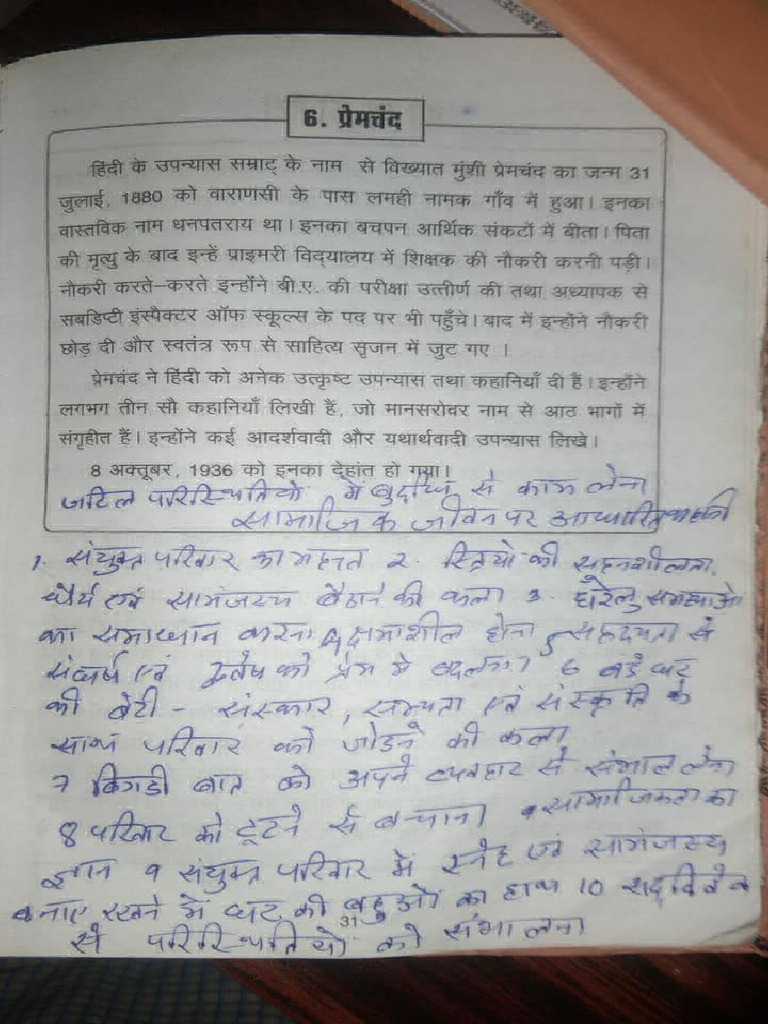 6. प्रेमचंद
हिंदी के उपन्यास सम्राट् के नाम से विख्यात मुंशी प्रेमचंद का जन्म 31
जुलाई, 1880 को वाराणसी के पास लमही नामक गाँव में हुआ। इनका
वास्तविक नाम धनपतराय था। इनका बचपन आर्थिक संकटों में बीता। पिता
की मृत्यु के बाद इन्हें प्राइमरी विद्यालय में शिक्षक की नौकरी करनी पड़ी।
नौकरी करते-करते इन्होंने बी.ए. की परीक्षा उत्तीर्ण की तथा अध्यापक से
सबडिप्टी इंस्पैक्टर ऑफ स्कूल्स के पद पर भी पहुँचे। बाद में इन्होंने नौकरी
छोड़ दी और स्वतंत्र रूप से साहित्य सृजन में जुट गए ।
प्रेमचंद ने हिंदी को अनेक उत्कृष्ट उपन्यास तथा कहानियाँ दी हैं। इन्होंने
लगभग तीन सौ कहानियाँ लिखी हैं, जो मानसरोवर नाम से आठ भागों में
संगृहीत हैं। इन्होंने कई आदर्शवादी और यथार्थवादी उपन्यास लिखे।
8 अक्तूबर, 1936 को इनका देहांत हो गया।
जटिल परिस्थितियों में से काम लेना
सामाजिक जीवन पर आधारित कहानी
1. संयुक्त परिवार का महत्त्व 2. स्त्रियों की सहनशीलता,
धैर्य एवं सामंजस्य बैठाने की कला 3. घरेलु समस्याओं
का समाधान करना 4 क्षमाशील होना 5 सहृदयता से
संघर्ष एवं द्वेष को प्रेम में बदलना 6 बडे घर
की बेटी - संस्कार, सभ्यता एवं संस्कृति के
साथ परिवार को जोडने की कला
7 बिगडी बात को अपने व्यवहार से संभाल लेना
8 परिवार को टूटने से बचाना 9 सामाजिकता का
ज्ञान 9 संयुक्त परिवार में स्नेह एवं सामंजस्य
बनाए रखने में घर की बहुओं का हाथ 10 सद्विवेक
31
से परिस्थितियों को संभालना